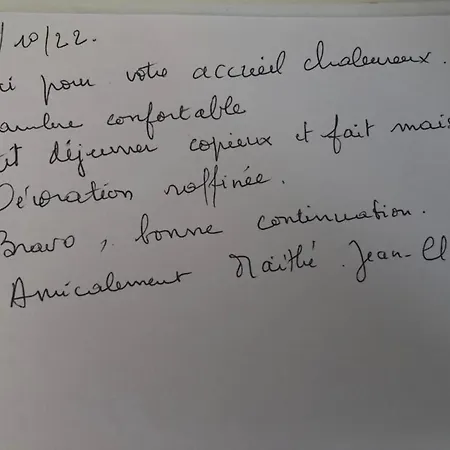 /10/22.
ci pour votre accueil chaleureux.
ambre confortable
tit déjeuner copieux et fait mais
Décoration raffinée.
Bravo, bonne continuation.
Amicalement Maïthé. Jean-Cl